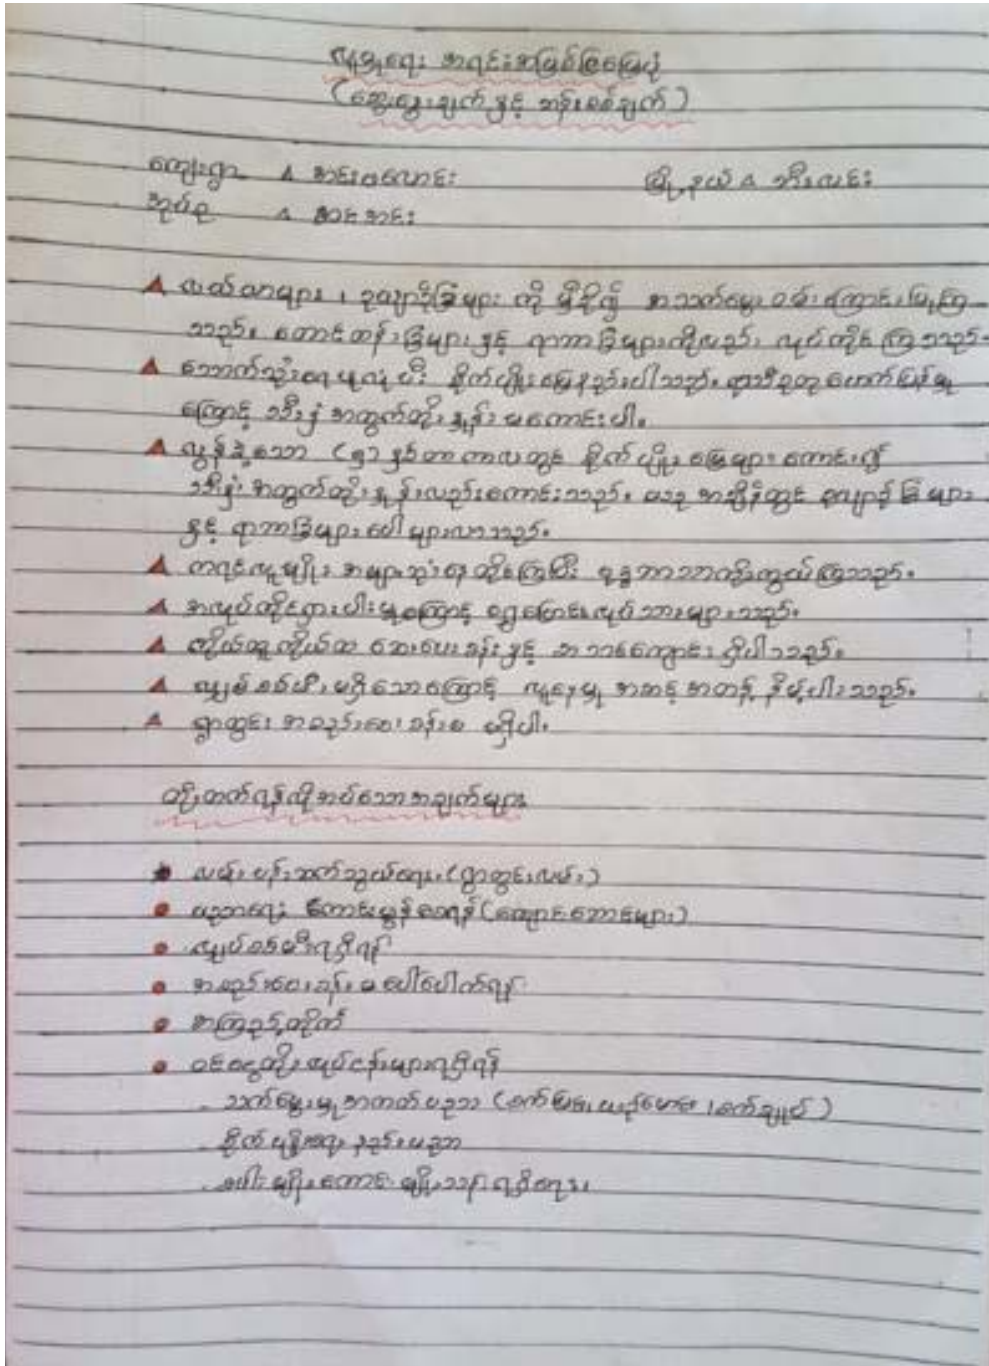 လူမှုရေး အရင်းအမြစ်ပြမြေပုံ
(ဆွေးနွေးချက် နှင့် ဆန်းစစ်ချက်)
ကျေးရွာ △ အင်းပလောင်း မြို့နယ် △ ဘီးလင်း
အုပ်စု △ အင်းအင်း
▲ လယ်ယာများ ၊ ဥယျာဉ်ခြံများ ကို မှီခို၍ အသက်မွေး ဝမ်းကျောင်း ပြုကြ
သည်။ တောင်တန်းခြံများ နှင့် ရာဘာခြံများကိုလည်း လုပ်ကိုင် ကြသည်။
▲ သောက်သုံးရေ မလုံ ပီး စိုက်ပျိုးမြေနည်းပါသည်။ ရာသီဥတု ဖောက်ပြန်မှု
ကြောင့် သီးနှံ အထွက်တိုးနှုန်း မကောင်းပါ။
▲ လွန်ခဲ့သော (၅) နှစ်တာကာလတွင် စိုက်ပျိုး မြေများ ကောင်း၍
သီးနှံ အထွက်တိုးနှုန်းလည်းကောင်းသည်။ ယခု အချိန်တွင် ဥယျာဉ် ခြံများ
နှင့် ရာဘာခြံများ ပေါ များလာသည်။
▲ ကရင်လူမျိုး အများဆုံးနေထိုင်ကြပြီး ဗုဒ္ဓဘာသာကိုးကွယ်ကြသည်။
▲ အလုပ်ကိုင်ရှားပါးမှုကြောင့် ရွှေ့ပြောင်းလုပ်သားများသည်။
▲ ကိုယ်ထူကိုယ်ထ ဆေးပေးခန်းနှင့် စာသင်ကျောင်း ရှိပါသည်။
▲ လျှပ်စစ်မီး မရှိသောကြောင့် လူနေမှု အဆင့် အတန်း နိမ့်ပါးသည်။
▲ ရွာတွင်း အစည်းဝေးခန်းမ မရှိပါ။
တိုးတက်ရန်လိုအပ်သောအချက်များ
● လမ်းပန်းဆက်သွယ်ရေး (ရွာတွင်းလမ်း)
● ပညာရေး ကောင်းမွန်စေရန် (ကျောင်းဆောင်များ)
● လျှပ်စစ်မီးရရှိရန်
● အစည်းဝေးခန်းမ ပေါ်ပေါက်ရန်
● အကြည့်တိုက်
● ဝင်ငွေတိုးလုပ်ငန်းများရရှိရန်
- သက်မွေးမှုအတတ်ပညာ (စက်ပြင်၊ မော်တော် ၊ စက်ချုပ်)
- စိုက်ပျိုးရေး နည်းပညာ
- စပါးမျိုးကောင်း မျိုးသန့်ရရှိရေး။